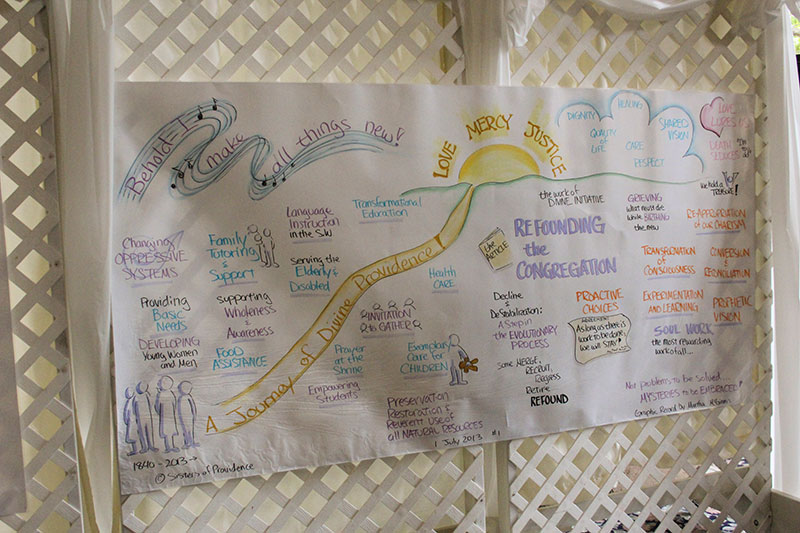 Behold - I
make
all things new!
LOVE MERCY JUSTICE
DIGNITY
HEALING
SHARED
VISION
QUALITY
of
LIFE
CARE
RESPECT
Transformational
Education
Language
Instruction
in the S.W.
Changing
OPPRESSIVE
SYSTEMS
Family
Tutoring
&
Support
Serving the
Elderly &
Disabled
Health
CARE
Providing
Basic
Needs
Supporting
Wholeness
&
Awareness
INVITATION
to GATHER
DEVELOPING
Young Women
and Men
FOOD
ASSISTANCE
Prayer
at the
Shrine
Exemplary
Care for
CHILDREN
Empowering
Students
Preservation
Restoration &
Reverent Use of
all NATURAL RESOURCES
A Journey of Divine Providence!
1840 - 2013 →
© Sisters of Providence
1 July 2013 #1
the work of
DIVINE INITIATIVE
the
ARTICLE
REFOUNDING
the
CONGREGATION
GRIEVING
what must die
while BIRTHING
the new
We hold a
TREASURE!
RE-APPROPRIATION
of our CHARISM
TRANSFORMATION
of
CONSCIOUSNESS
CONVERSION
&
RECONCILIATION
Decline
&
Destabilization:
A Step in
the EVOLUTIONARY
PROCESS
PROACTIVE
CHOICES
EXPERIMENTATION
AND LEARNING
PROPHETIC
VISION
As long as there is
work to be done,
we will STAY!
SOUL WORK
the most rewarding
work of all...
Some MERGE,
RECRUIT,
Retire
REFOUND
Not problems to be solved
MYSTERIES to be EMBRACED!
Graphic Record by Martha